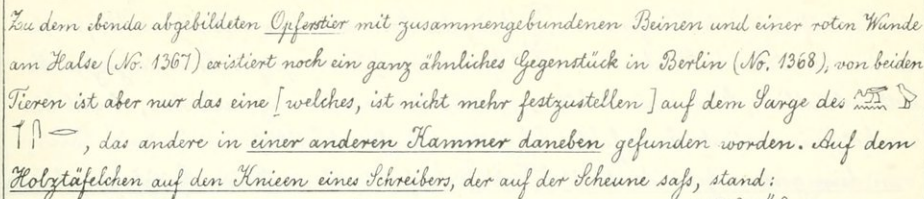 Zu dem ebenda abgebildeten Opferstier mit zusammengebundenen Beinen und einer roten Wunde
am Halse (No. 1367) existiert noch ein ganz ähnliches Gegenstück in Berlin (No. 1368), von beiden
Tieren ist aber nur das eine [welches, ist nicht mehr festzustellen] auf dem Sarge des
, das andere in einer anderen Kammer daneben gefunden worden. Auf dem
Holztäfelchen auf den Knieen eines Schreibers, der auf der Scheune saß, stand: